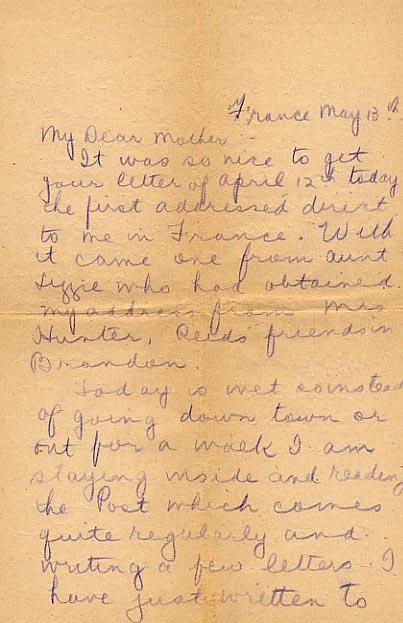 France May 13th
My Dear Mother -
It was so nice to get
your letter of April 12th today
the first addressed direct
to me in France. With
it came one from aunt
Lizzie who had obtained
my address from Mrs
Hunter, Reids friends in
Brandon.
Today is wet so instead
of going down town or
out for a walk I am
staying inside and reading
the Post which comes
quite regularly and
writing a few letters. I
have just written to